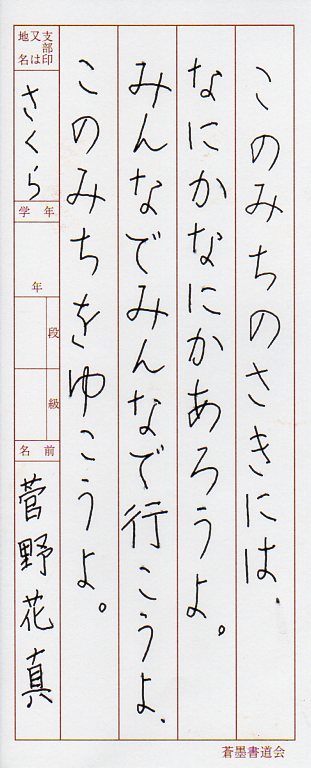 このみちのさきには、
なにかなにかあろうよ。
みんなでみんなで行こうよ、
このみちをゆこうよ。
支部印
又は
地名
さくら
学年
年
段
級
名前
菅野花真
蒼墨書道会